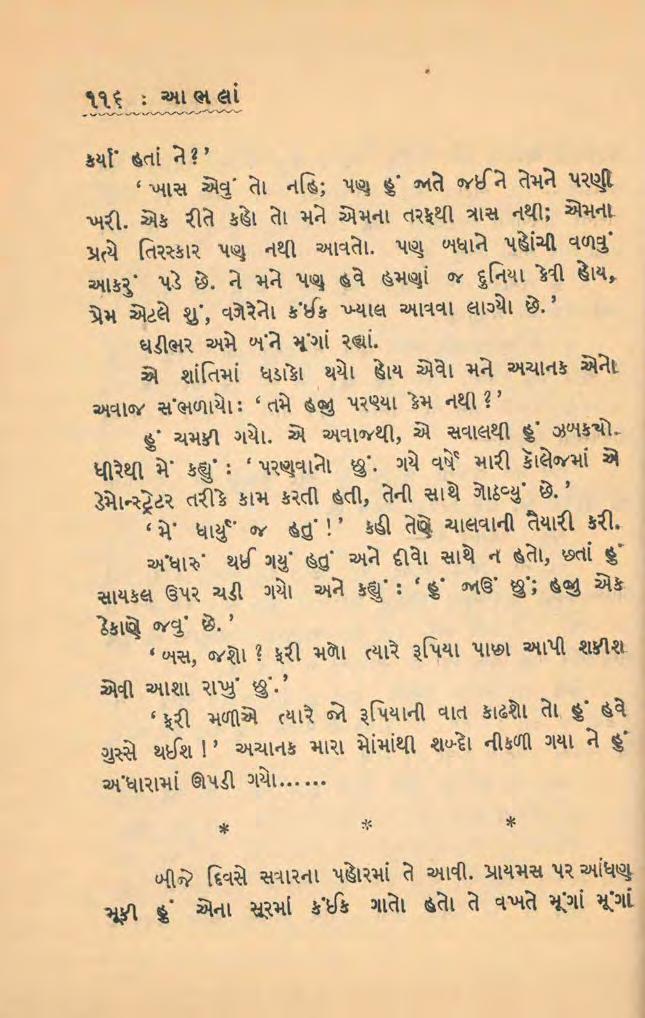 ૧૧૬ : આભલાં
કર્યાં હતાં ને?’
‘ખાસ એવું તો નહિ; પણ હું જાતે જઈને તેમને પરણી
ખરી. એક રીતે કહો તો મને એમના તરફથી ત્રાસ નથી; એમના
પ્રત્યે તિરસ્કાર પણ નથી આવતો. પણ બધાને પહોંચી વળવું
આકરું પડે છે. ને મને પણ હવે હમણાં જ દુનિયા કેવી હોય,
પ્રેમ એટલે શું, વગેરેનો કંઈક ખ્યાલ આવવા લાગ્યો છે.’
ઘડીભર અમે બંને મૂંગાં રહ્યાં.
એ શાંતિમાં ધડાકો થયો હોય એવો મને અચાનક એનો
અવાજ સંભળાયો: ‘તમે હજી પરણ્યા કેમ નથી?’
હું ચમકી ગયો. એ અવાજથી, એ સવાલથી હું ઝબકયો.
ધીરેથી મેં કહ્યું : ‘પરણવાનો છું. ગયે વર્ષે મારી કૉલેજમાં એ
ડેમોન્સ્ટ્રેટર તરીકે કામ કરતી હતી, તેની સાથે ગોઠવ્યું છે.’
‘મેં ધાર્યું જ હતું !’ કહી તેણે ચાલવાની તૈયારી કરી.
અંધારું થઈ ગયું હતું અને દીવો સાથે ન હતો, છતાં હું
સાયકલ ઉપર ચડી ગયો અને કહ્યું : ‘હું જાઉં છું; હજી એક
ઠેકાણે જવું છે.’
‘બસ, જશો ? ફરી મળો ત્યારે રૂપિયા પાછા આપી શકીશ
એવી આશા રાખું છું.’
‘ફરી મળીએ ત્યારે જો રૂપિયાની વાત કાઢશો તો હું હવે
ગુસ્સે થઈશ !’ અચાનક મારા મોંમાંથી શબ્દો નીકળી ગયા ને હું
અંધારામાં ઊપડી ગયો......
* * *
બીજે દિવસે સવારના પહોરમાં તે આવી. પ્રાયમસ પર આંધણ
મૂકી હું એના સૂરમાં કંઈક ગાતો હતો તે વખતે મૂંગાં મૂંગાં